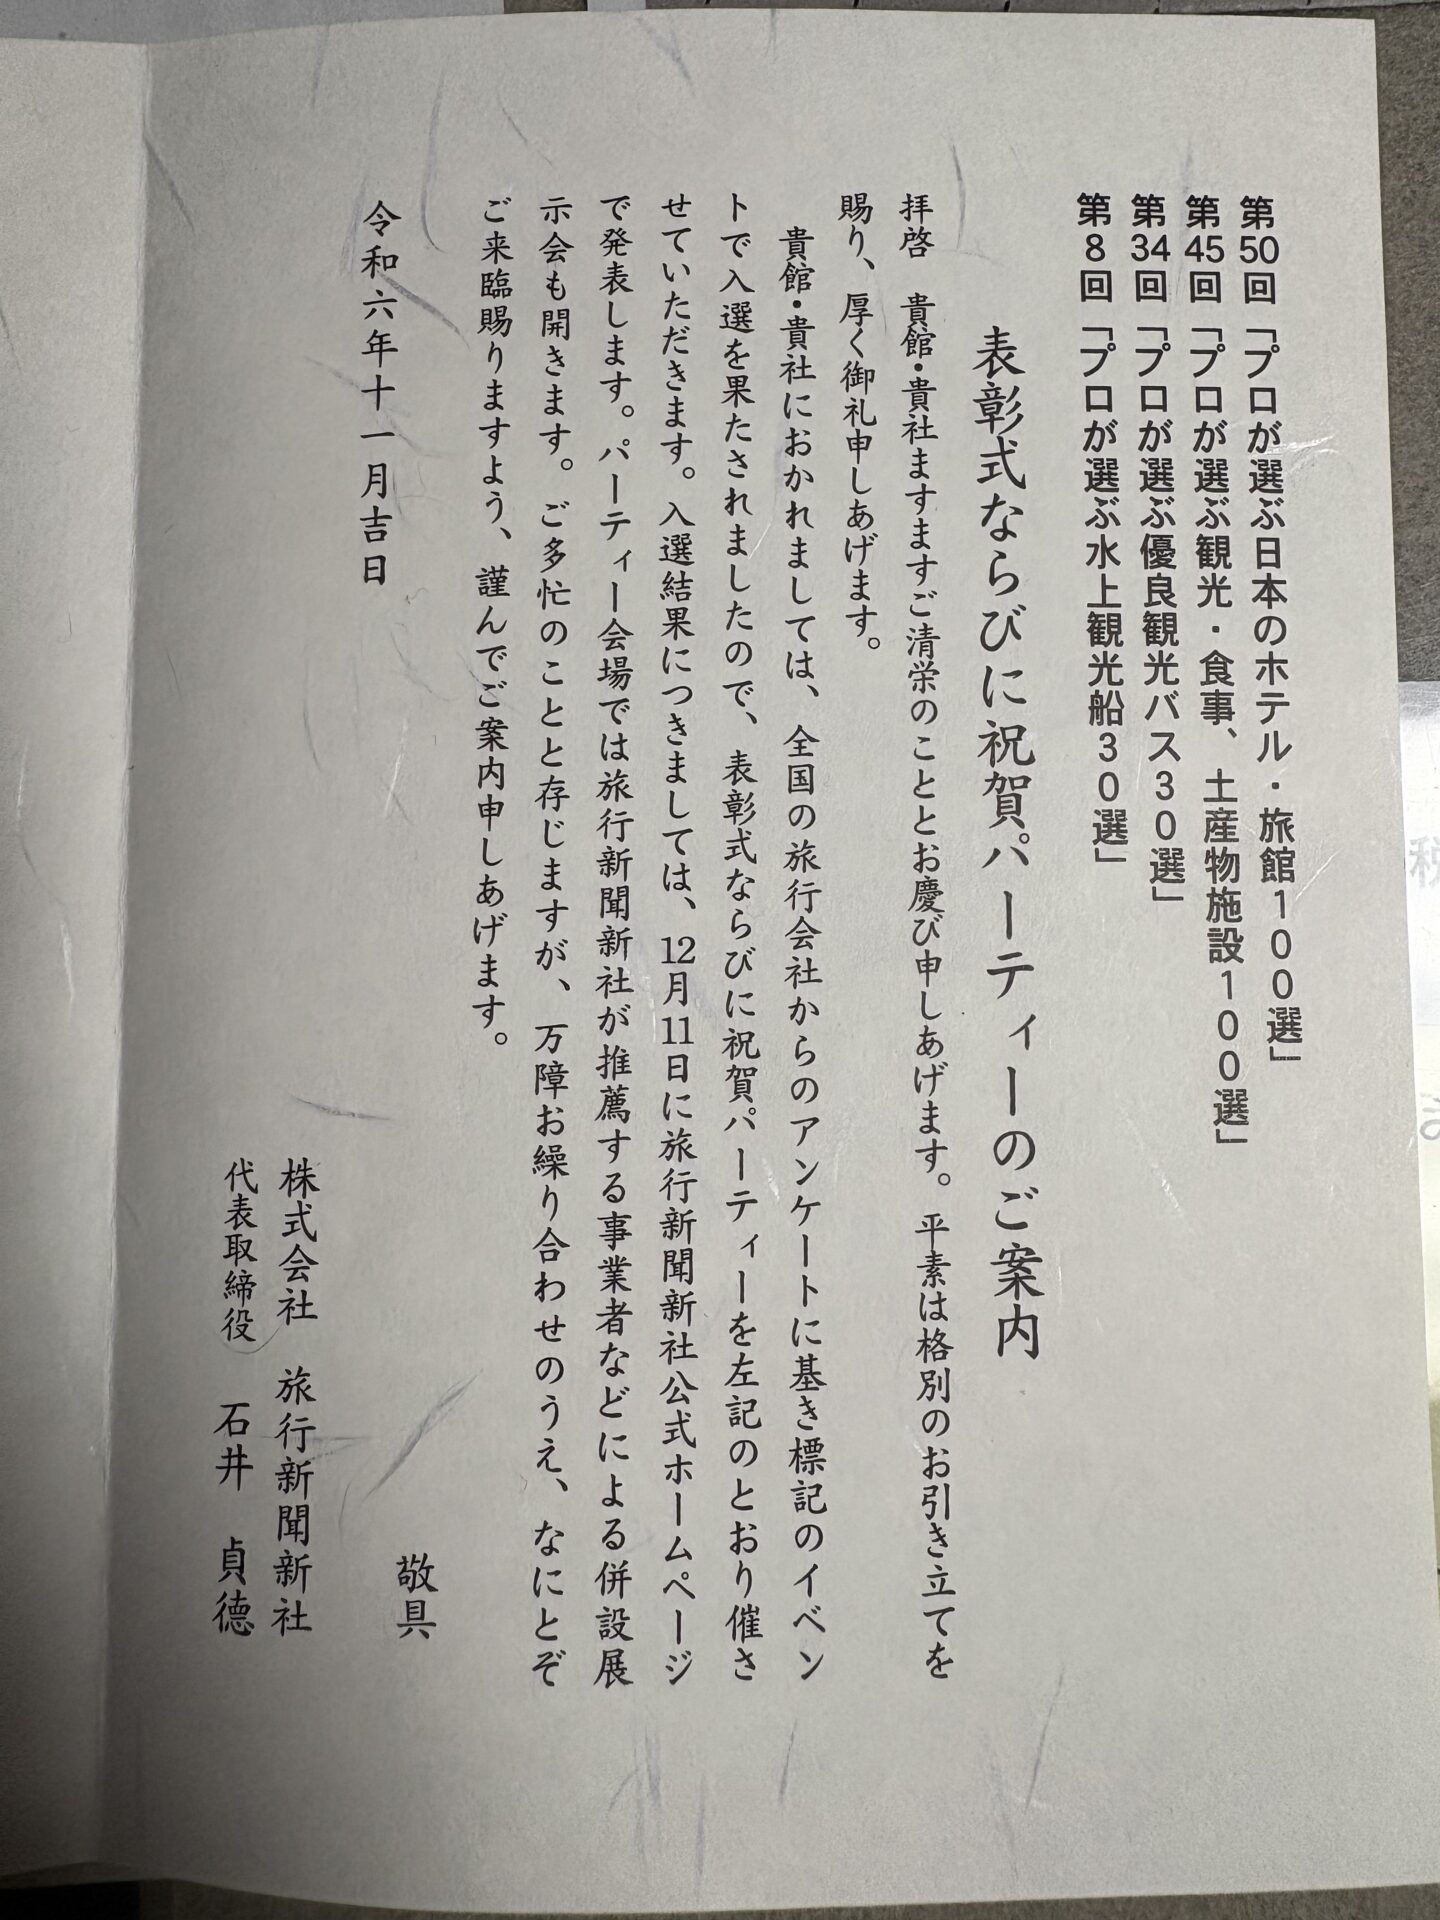 第50回「プロが選ぶ日本のホテル・旅館100選」
第45回「プロが選ぶ観光・食事、土産物施設100選」
第34回「プロが選ぶ優良観光バス30選」
第8回「プロが選ぶ水上観光船30選」
表彰式ならびに祝賀パーティーのご案内
拝啓　貴館・貴社ますますご清栄のこととお慶び申しあげます。平素は格別のお引き立てを
賜り、厚く御礼申しあげます。
貴館・貴社におかれましては、全国の旅行会社からのアンケートに基き標記のイベン
トで入選を果たされましたので、表彰式ならびに祝賀パーティーを左記のとおり催さ
せていただきます。入選結果につきましては、12月11日に旅行新聞新社公式ホームページ
で発表します。パーティー会場では旅行新聞新社が推薦する事業者などによる併設展
示会も開きます。ご多忙のことと存じますが、万障お繰り合わせのうえ、なにとぞ
ご来臨賜りますよう、謹んでご案内申しあげます。
敬具
令和六年十一月吉日
株式会社　旅行新聞新社
代表取締役　石井　貞德